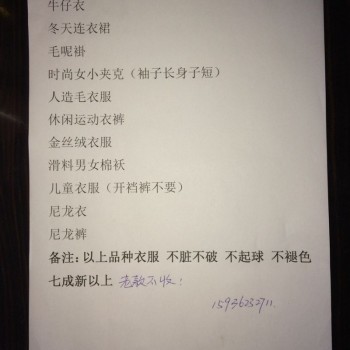 牛仔衣
冬天连衣裙
毛呢褂
时尚女小夹克（袖子长身子短）
人造毛衣服
休闲运动衣裤
金丝绒衣服
滑料男女棉袄
儿童衣服（开裆裤不要）
尼龙衣
尼龙裤
备注：以上品种衣服 不脏不破 不起球 不褪色
七成新以上 老款不收！
15936252711